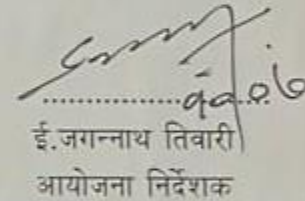 ई.जगन्नाथ तिवारी
आयोजना निर्देशक